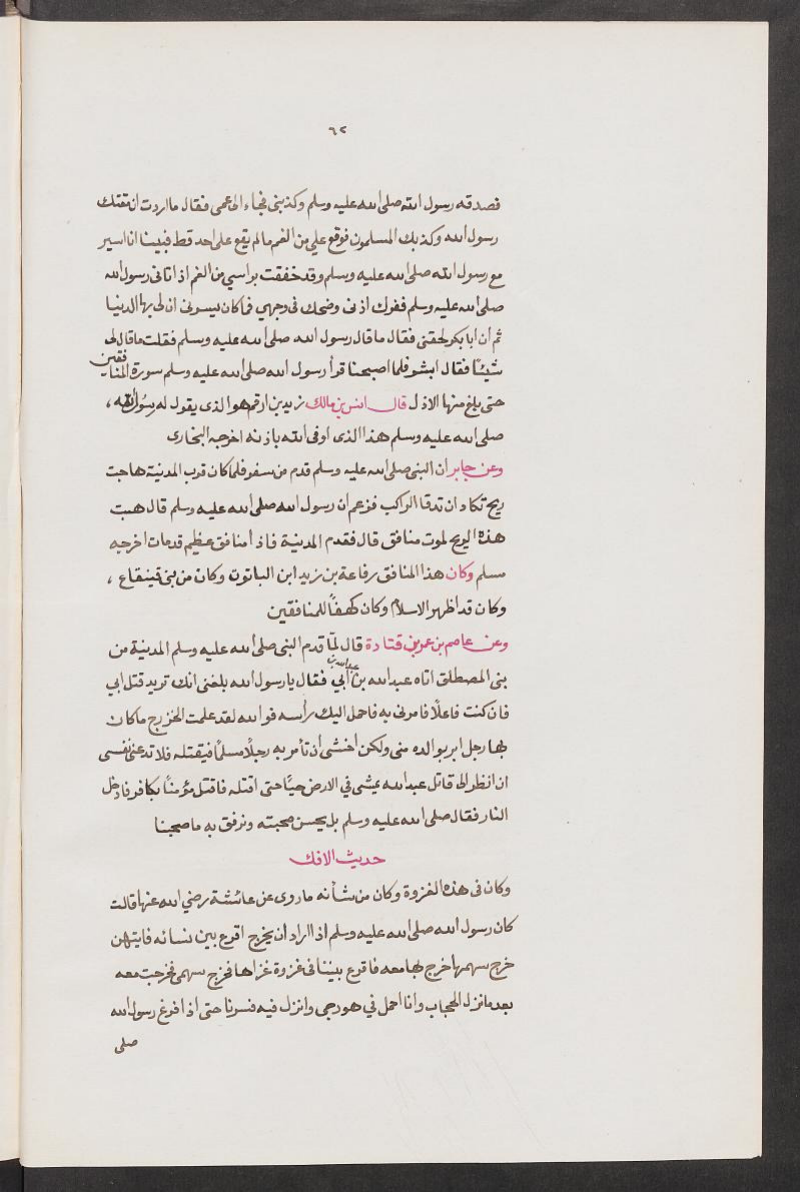 ٦٢
فصدقه رسول الله صلى الله عليه وسلم وكذبنى فجاء الى عمى فقال ما اردت ان مقتك
رسول الله وكذبك المسلمون فوقع علي من الغم مالم يقع على احد قط فبينا انا اسير
مع رسول الله صلى الله عليه وسلم وقد خفقت براسي من الغم اذ اتانى رسول الله
صلى الله عليه وسلم ففرك اذنى وضحك فى وجهي فما كان يسرنى ان لى بها الدنيا
ثم ان ابا بكر لحقنى فقال ما قال رسول الله صلى الله عليه وسلم فقلت ما قال لى
شيئًا فقال ابشر فلما اصبحنا قرأ رسول الله صلى الله عليه وسلم سورة المنافقين
حتى بلغ منها الاذل قال انس بن مالك زيد بن ارقم هو الذى يقول له رسول الله ،
صلى الله عليه وسلم هذا الذى اوفى الله باذنه اخرجه البخارى
وعن جابر ان النبى صلى الله عليه وسلم قدم من سفر فلما كان قرب المدينة هاجت
ريح تكاد ان تدقا الراكب فزعم ان رسول الله صلى الله عليه وسلم قال هبت
هذه الريح لموت منافق قال فقدم المدينة فاذا منافق عظيم قد مات اخرجه
مسلم وكان هذا المنافق رفاعة بن زيد ابن الباتوت وكان من بنى قينقاع ،
وكان قد اظهر الاسلام وكان كهفًا للمنافقين
وعن عاصم بن عمر بن قتادة قال لمّا قدم النبى صلى الله عليه وسلم المدينة من
بنى المصطلق اتاه عبد الله بن عبد الله بن أبي فقال يا رسول الله بلغنى انك تريد قتل ابي
فان كنت فاعلًا فامرنى به فاحمل اليك رأسه فوالله لقد علمت الخزرج ما كان
بها رجل ابر بوالده منى ولكن اخشى ان تأمر به رجلًا مسلمًا فيقتله فلا تدعنى نفسى
ان انظر الى قاتل عبد الله يمشى في الارض حيًّا حتى اقتله فاقتل مؤمنًا بكافر فادخل
النار فقال صلى الله عليه وسلم بل يحسن صحبته ونرفق به ما صحبنا
حديث الافك
وكان فى هذه الغزوة وكان من شأنه ما روى عن عائشة رضي الله عنها قالت
كان رسول الله صلى الله عليه وسلم اذا اراد ان يخرج اقرع بين نسائه فايتهن
خرج سهمها خرج بها معه فاقرع بيننا فى غزوة غزاها فخرج سهمى فخرجت معه
بعد ما نزل الحجاب وانا احمل في هودجى وانزل فيه فسرنا حتى اذا افرغ رسول الله
صلى